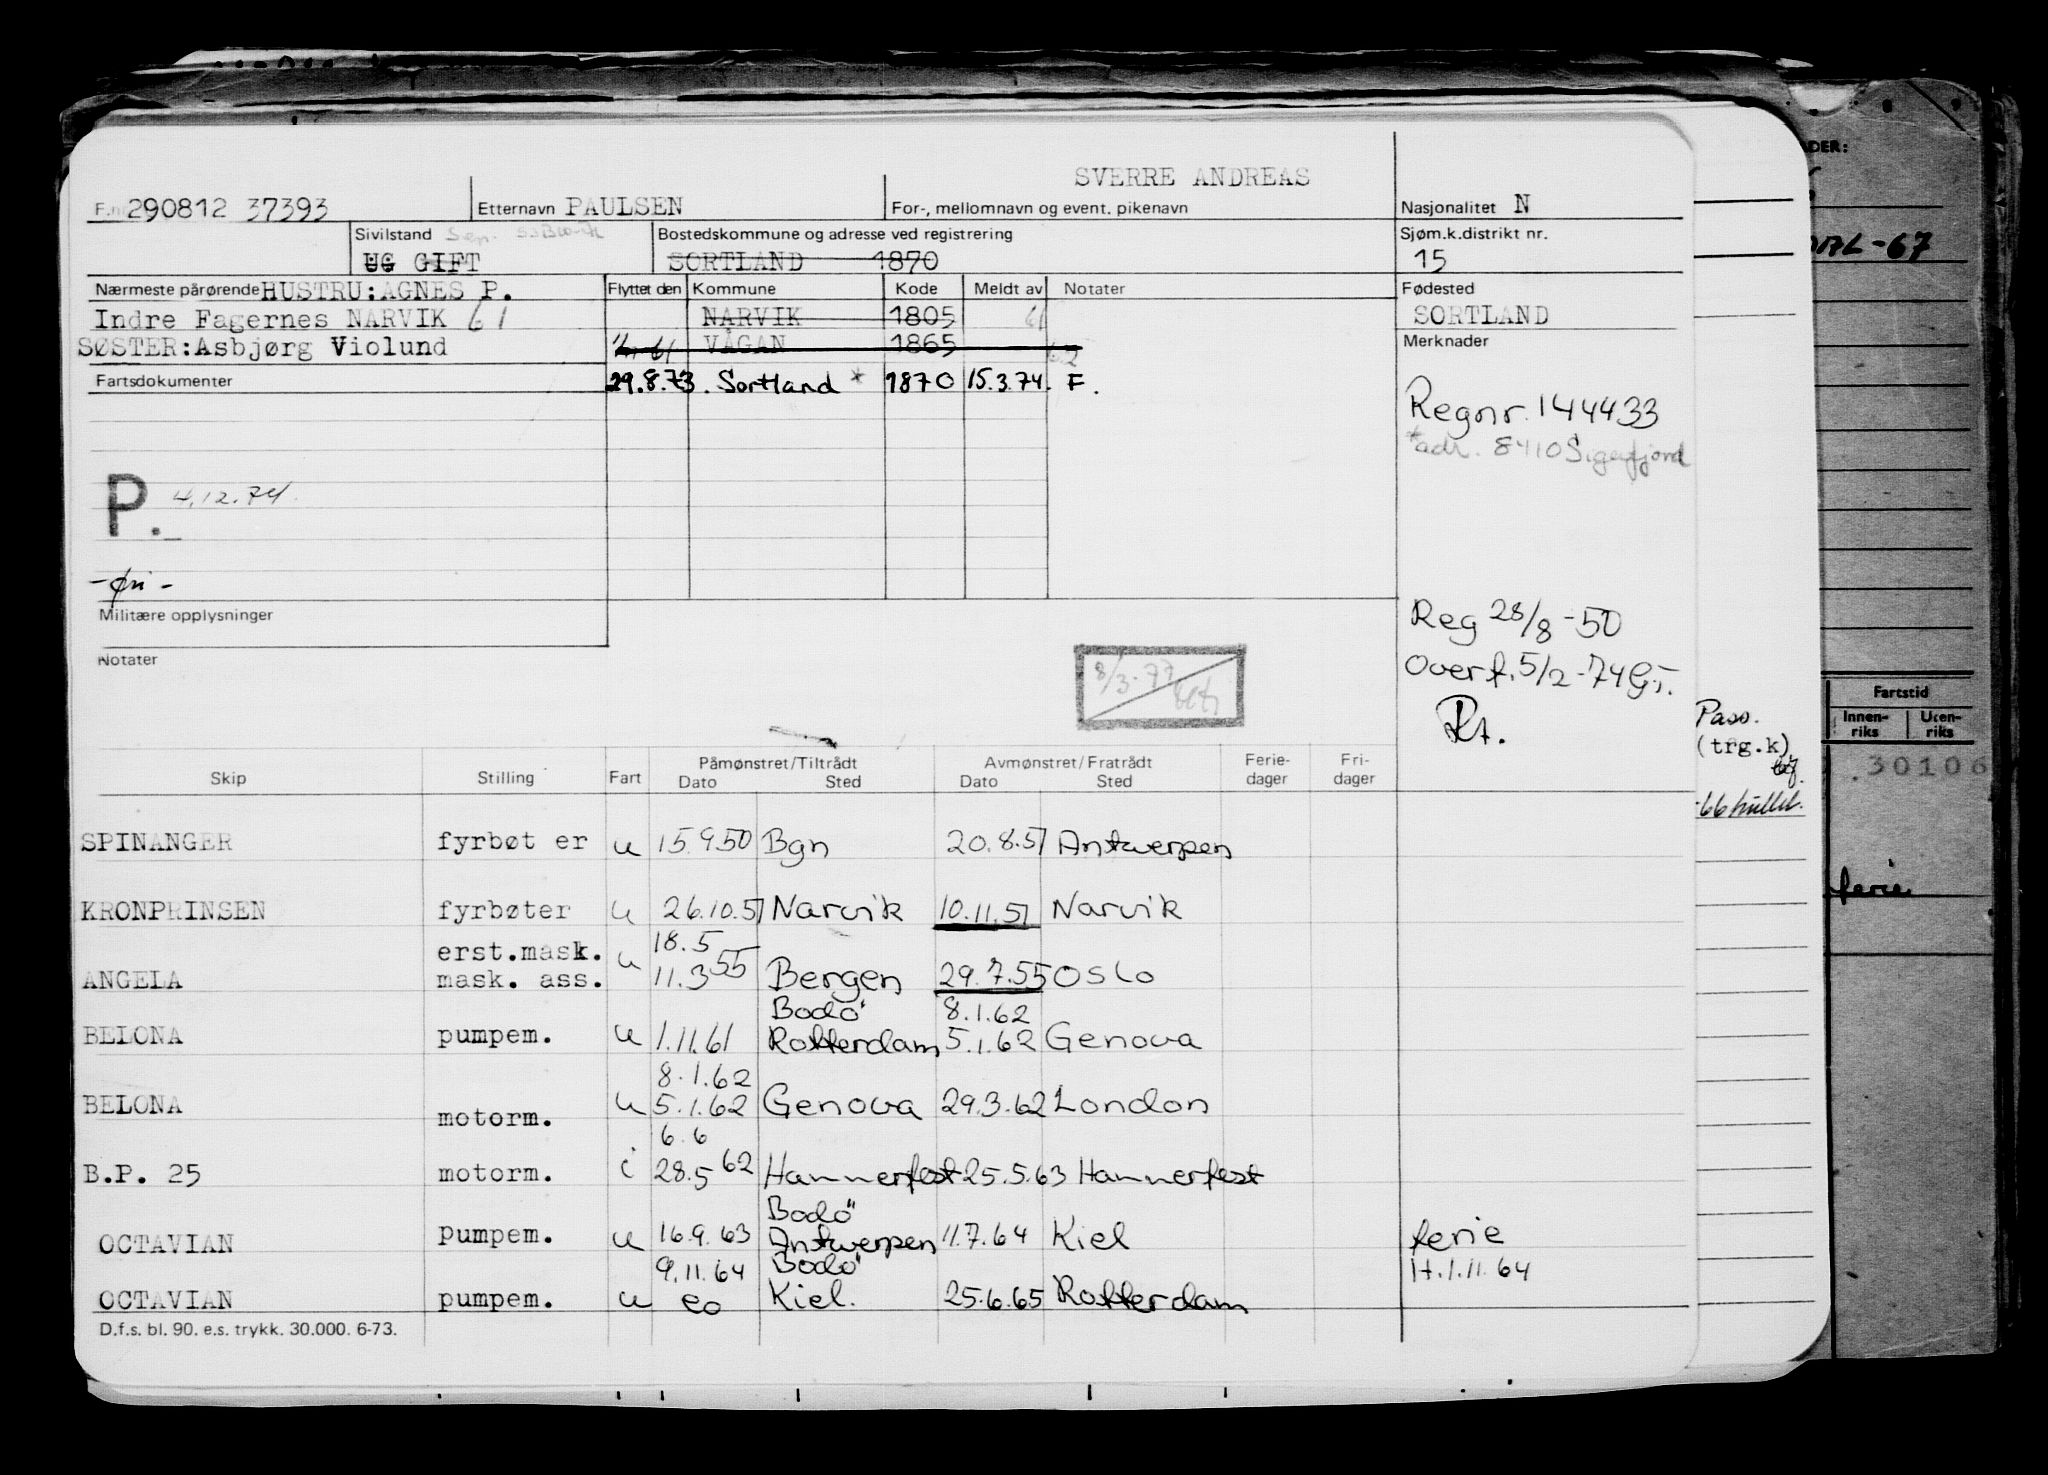 SVERRE ANDREAS
F.nr. 290812 37393 Etternavn PAULSEN For-, mellomnavn og event. pikenavn Nasjonalitet N
Sivilstand Sep. Bostedskommune og adresse ved registrering Sjøm.k.distrikt nr.
UG GIFT SORTLAND 1870 15
Nærmeste pårørende HUSTRU: AGNES P. Flyttet den Kommune Kode Meldt av Notater Fødested
Indre Fagernes NARVIK 61 NARVIK 1805 61 SORTLAND
SØSTER: Asbjørg Violund 61 VÅGAN 1865 62 Merknader
Fartsdokumenter 29.8.73. Sortland * 1870 15.3.74. F.
Regnr. 144433
*adr. 8410 Sigerfjord
P. 4.12.74.
Militære opplysninger
Reg 28/8-50
Notater
Overf. 5/2-74 Gr.
8/3-77
Rt.
Skip Stilling Fart Påmønstret/Tiltrådt Avmønstret/Fratrådt Ferie- Fri-
Dato Sted Dato Sted dager dager
SPINANGER fyrbøt er u 15.9.50 Bgn 20.8.51 Antwerpen
KRONPRINSEN fyrbøter u 26.10.51 Narvik 10.11.51 Narvik
erst.mask. 18.5
ANGELA mask. ass. u 11.3 55 Bergen 29.7.55 Oslo
Bodö 8.1.62
BELONA pumpem. u 1.11.61 Rotterdam 5.1.62 Genova
8.1.62
BELONA motorm. u 5.1.62 Genova 29.3.62 London
6.6
B.P. 25 motorm. i 28.5 62 Hammerfest 25.5.63 Hammerfest
Bodö
OCTAVIAN pumpem. u 16.9.63 Antwerpen 11.7.64 Kiel ferie
9.11.64 Bodö 1t.1.11.64
OCTAVIAN pumpem. u eo Kiel. 25.6.65 Rotterdam
D.f.s. bl. 90. e.s. trykk. 30.000. 6-73.
Pass.
(trg.k)
-66
ADER:
-67
Fartstid
Innen- Uten-
riks riks
30106
ferie